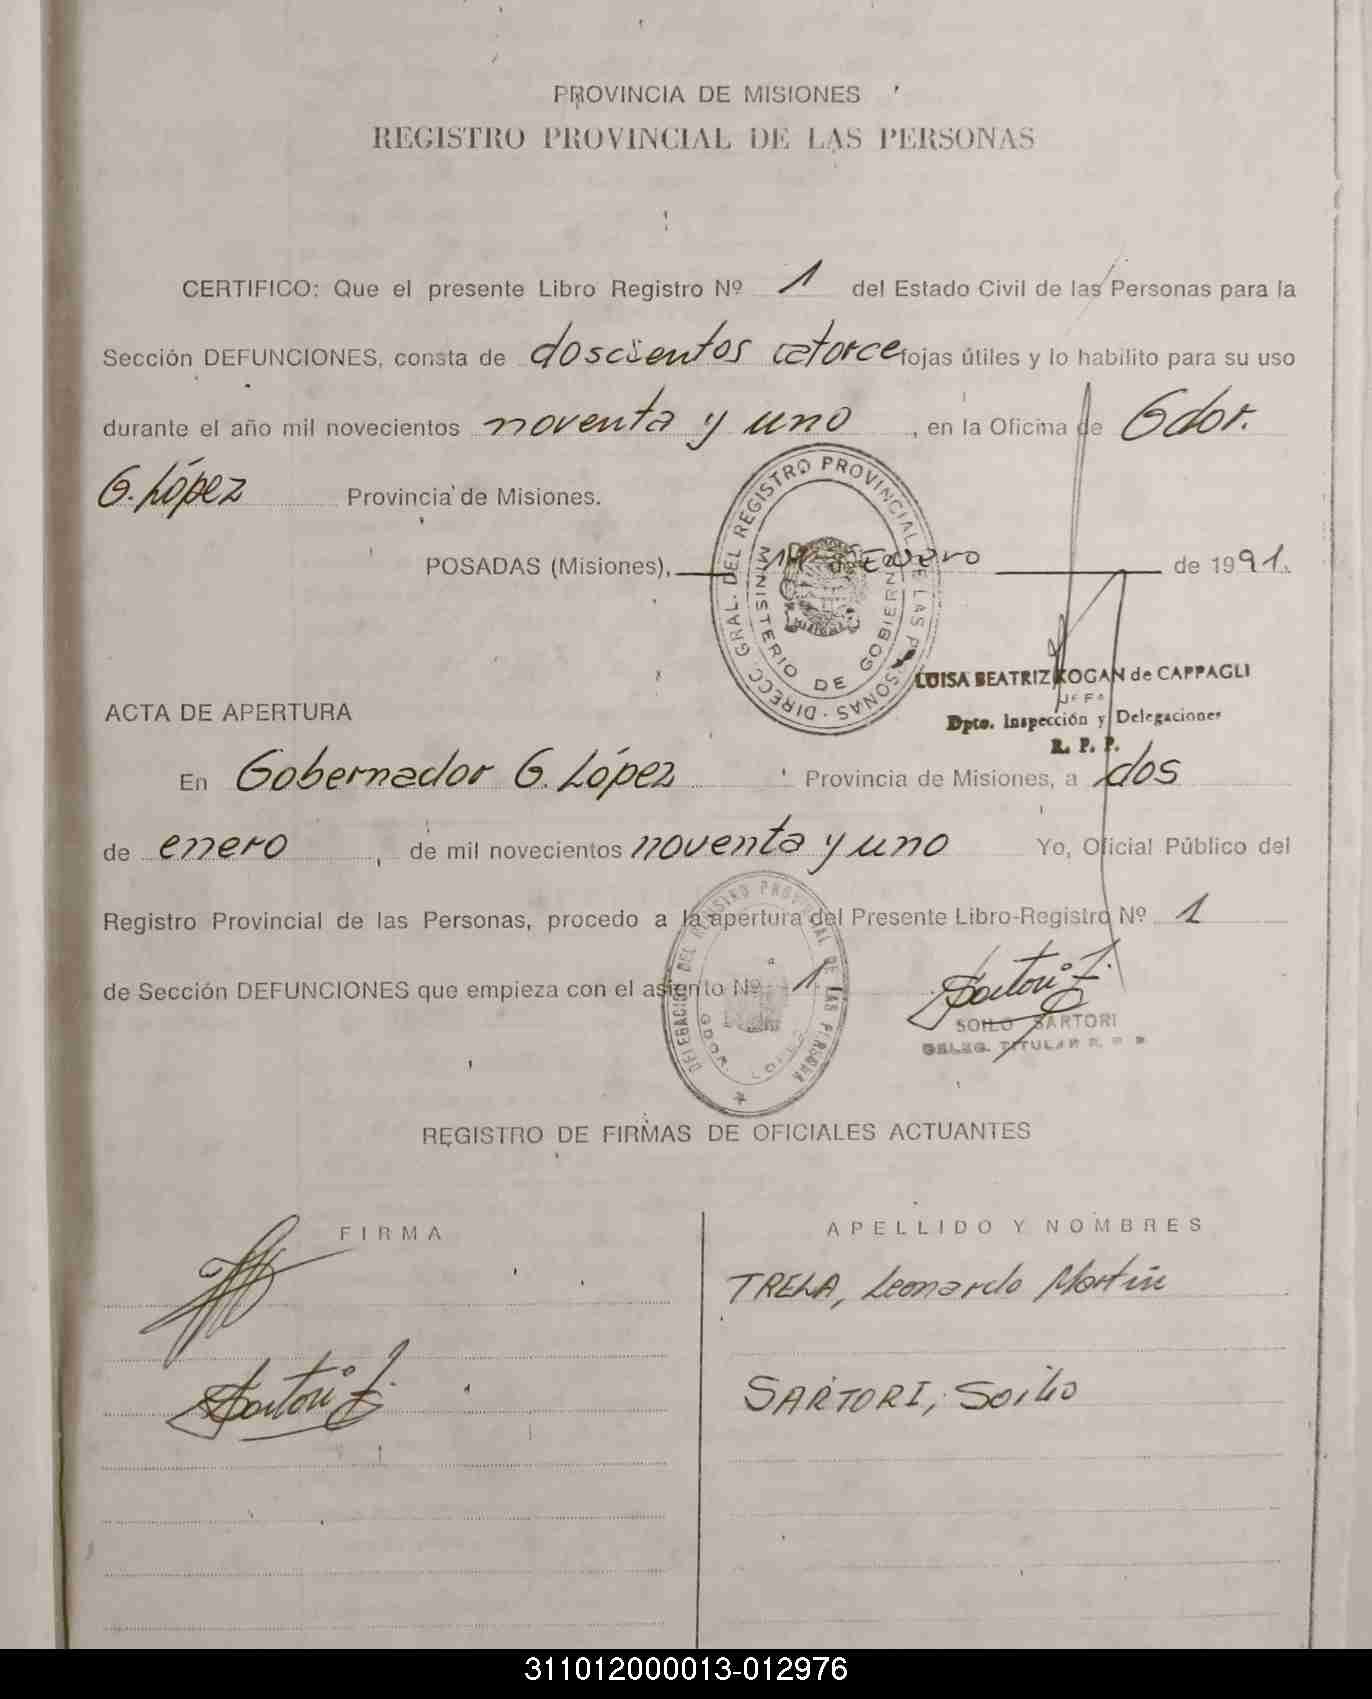 PROVINCIA DE MISIONES
REGISTRO PROVINCIAL DE LAS PERSONAS
CERTIFICO: Que el presente Libro Registro Nº 1 del Estado Civil de las Personas para la
Sección DEFUNCIONES, consta de doscientos catorce fojas útiles y lo habilito para su uso
durante el año mil novecientos noventa y uno, en la Oficina de Gdor.
G. López Provincia de Misiones.
POSADAS (Misiones), de Enero de 1991.
DIRECC. GRAL. DEL REGISTRO PROVINCIAL DE LAS PERSONAS
MINISTERIO DE GOBIERNO
LUISA BEATRIZ KOGAN de CAPPAGLI
JEFA
Dpto. Inspección y Delegaciones
R. P. P.
ACTA DE APERTURA
En Gobernador G. López Provincia de Misiones, a dos
de enero, de mil novecientos noventa y uno Yo, Oficial Público del
Registro Provincial de las Personas, procedo a la apertura del Presente Libro-Registro Nº 1
de Sección DEFUNCIONES que empieza con el asiento Nº 1
DELEGACION DEL REGISTRO PROVINCIAL DE LAS PERSONAS
GDOR. LOPEZ
Sartori
SOILO SARTORI
DELEG. TITULAR R. P. P.
REGISTRO DE FIRMAS DE OFICIALES ACTUANTES
FIRMA
APELLIDO Y NOMBRES
TRELA, Leonardo Martín
Sartori
SARTORI, Soilo
311012000013-012976